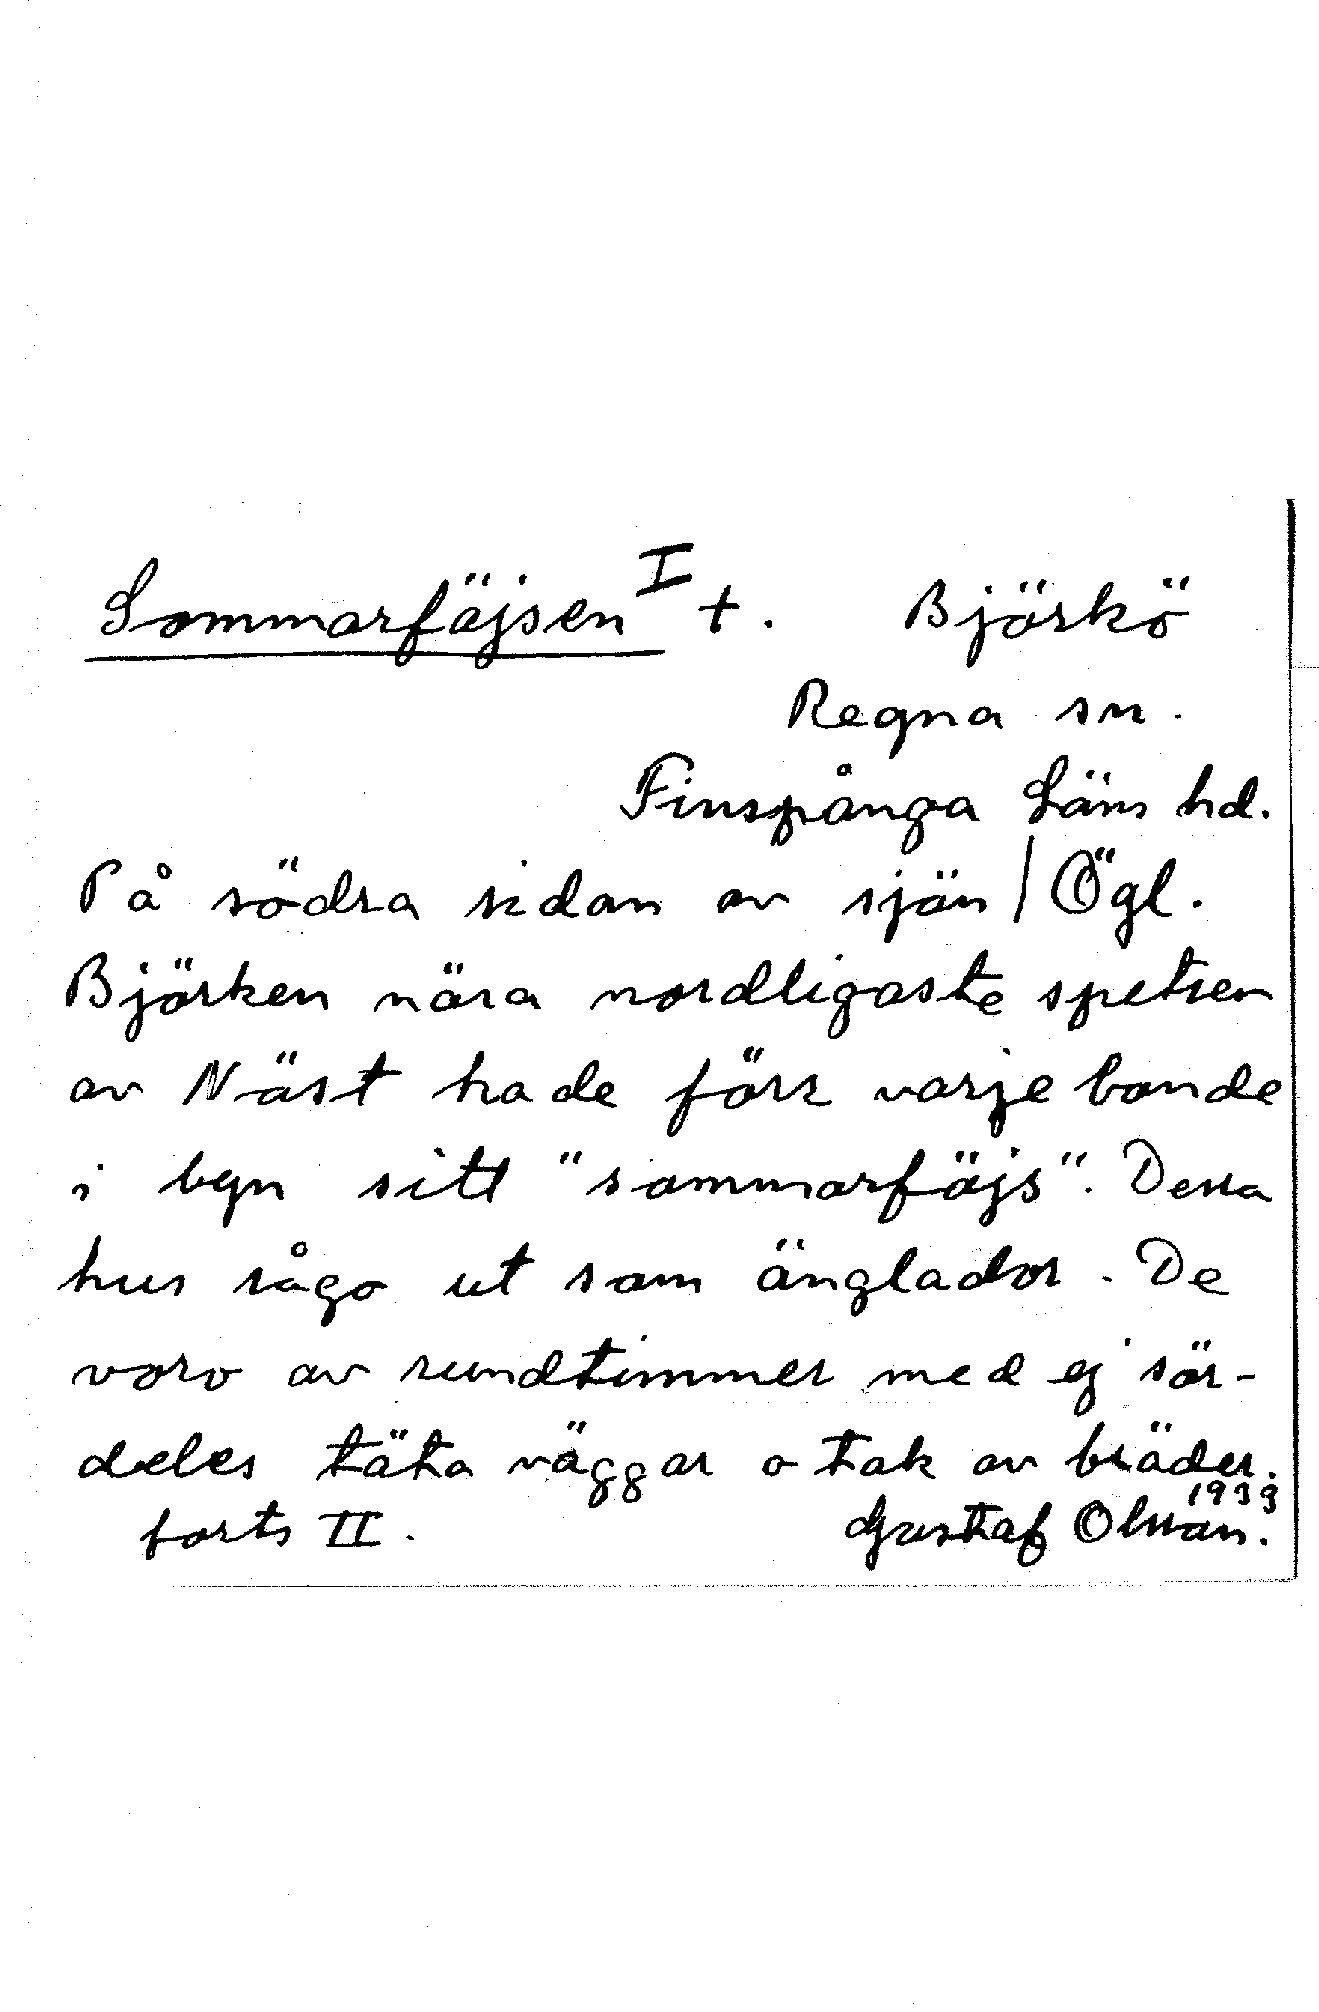 Sommarfäjsen I +. Björkö
Regna sn.
Finspånga Läns hd.
På södra sidan av sjön / Ögl.
Björken nära nordligaste spetsen
av Näst hade förr varje bonde
i byn sitt "sommarfäjs". Dessa
hus sågo ut som änglador. De
voro av rundtimmer med ej sär-
deles täta väggar o tak av bräder.
forts II. Gustaf Olsson. 1939